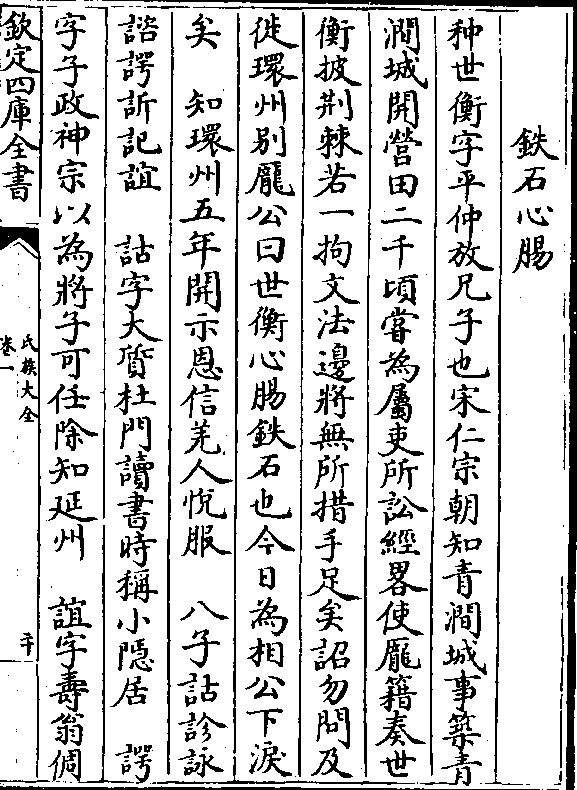 鉄石心腸
种世衡字平仲放兄子也宋仁宗朝知青澗城事築青
澗城開營田二千頃嘗為屬吏所訟經畧使龐籍奏世
衡披荆棘若一拘文法邊將無所措手足矣詔勿問及
徙環州别龐公曰世衡心腸鉄石也今日為相公下淚
矣　知環州五年開示恩信羌人悅服　八子詁診詠
諮諤訢記誼　詁字大質杜門讀書時稱小隠居　諤
字子政神宗以為將子可任除知延州　誼字壽翁倜
欽定四庫全書
氏族大全
卷一
二十